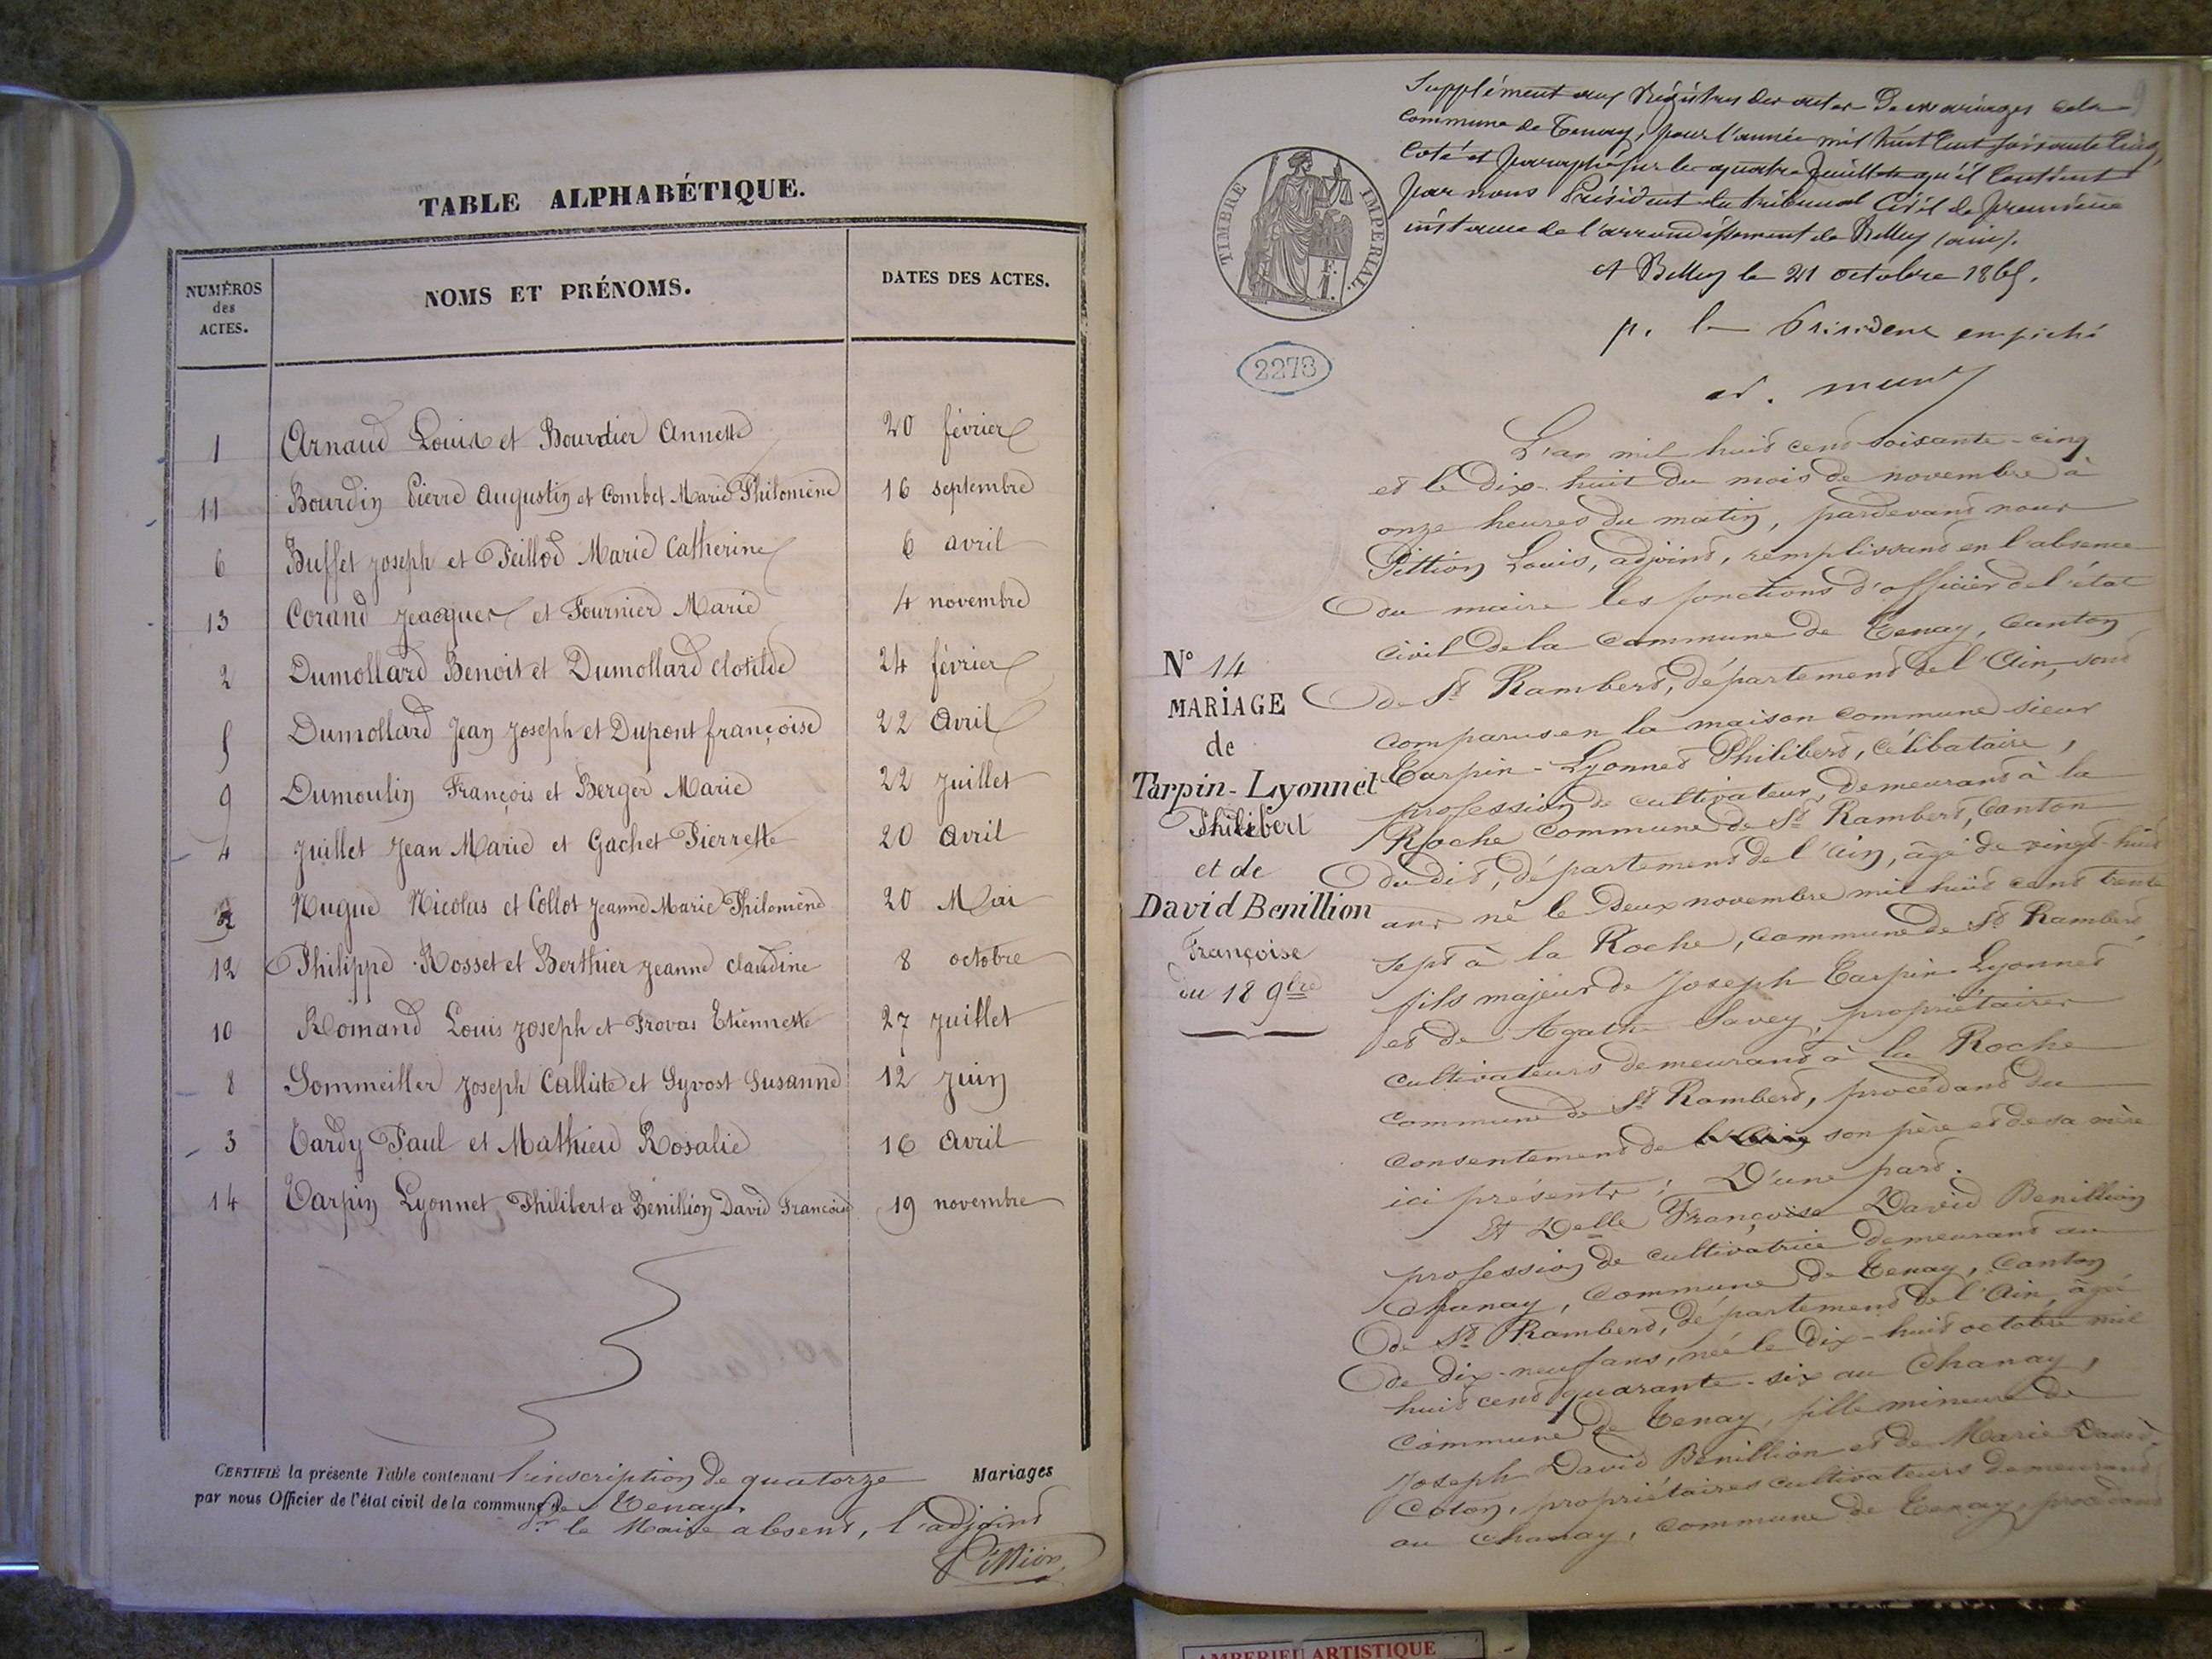 TABLE ALPHABÉTIQUE.
NUMÉROS des ACTES.
NOMS ET PRÉNOMS.
DATES DES ACTES.
1 Arnaud Louis et Bourdier Annette 20 février
11 Bourdin Pierre Augustin et Combet Marie Philomène 16 septembre
6 Buffet Joseph et Feillod Marie Catherine 6 avril
13 Corand Jeacques et Fournier Marie 4 novembre
2 Dumollard Benoit et Dumollard Clotilde 24 février
5 Dumollard Jean Joseph et Dupont françoise 22 Avril
9 Dumoulin François et Berger Marie 22 Juillet
4 Juillet Jean Marie et Gachet Pierrette 20 Avril
Nugue Nicolas et Collot Jeanne Marie Philomène 20 Mai
12 Philippe Rosset et Berthier Jeanne Claudine 8 octobre
10 Romand Louis Joseph et Provas Etiennette 27 Juillet
8 Sommeiller Joseph Calliste et Gyvost Susanne 12 Juin
3 Tardy Paul et Mathieu Rosalie 16 Avril
14 Tarpin Lyonnet Philibert et Bénillion David Françoise 19 novembre
CERTIFIÉ la présente Table contenant l'inscription de quatorze Mariages
par nous Officier de l'état civil de la commune de Tenay.
Pr le Maire absent, l'adjoint
Pittion
Supplément aux Régistres des actes de mariages de la
commune de Tenay, pour l'année mil huit cent soixante cinq,
coté et paraphé sur les quatre feuillets qu'il contient
par nous Président du tribunal Civil de première
instance de l'arrondissement de Belley (ain).
A Belley le 21 octobre 1865.
p. le Président empêché
TIMBRE IMPÉRIAL.
1 F.
2273
L'an mil huit cent soixante-cinq
et le Dix-huit du mois de novembre à
onze heures du matin, pardevant nous
Pittion Louis, adjoint, remplissant en l'absence
du maire les fonctions d'officier de l'état
civil de la commune de Tenay, canton
de St Rambert, département de l'Ain, sont
comparus en la maison commune sieur
Tarpin-Lyonnet Philibert, célibataire,
profession de cultivateur, demeurant à la
Roche commune de St Rambert, Canton
dudit, département de l'Ain, âgé de vingt-huit
ans né le Deux novembre mil huit cent trente
sept à la Roche, commune de St Rambert,
fils majeur de Joseph Tarpin-Lyonnet
et de Agathe Savey, propriétaires
cultivateurs demeurant à la Roche
commune de St Rambert, procédant du
consentement de son père et de sa mère
ici présents; D'une part.
Et Delle Françoise David Benillion
profession de cultivatrice demeurant au
Chanay, commune de Tenay, Canton
de St Rambert, département de l'Ain, âgée
de dix-neuf ans, née le Dix-huit octobre mil
huit cent quarante-six au Chanay,
commune de Tenay, fille mineure de
Joseph David Bénillion et de Marie David-
Coton, propriétaires cultivateurs demeurant
au Chanay, commune de Tenay, procédant
N° 14
MARIAGE
de
Tarpin-Lyonnet
Philibert
et de
David Benillion
Françoise
du 18 9bre
AMBERIEU ARTISTIQUE